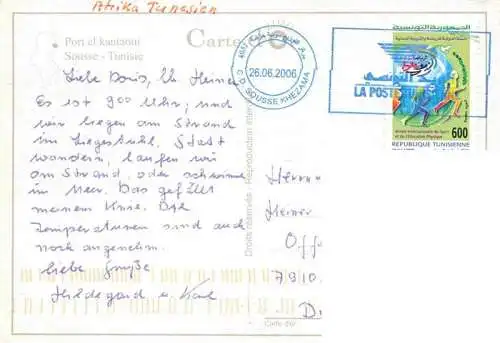 Afrika Tunesien
Port el kantaoui
Sousse - Tunisie
Carte
26.06.2006
C.D. SOUSSE KHEZAMA
LA POSTE
الجمهورية التونسية
600
REPUBLIQUE TUNISIENNE
Liebe Doris, lb. Heiner
Es ist 900 Uhr, und
wir liegen am Strand
im Liegestuhl. Statt
wandern, laufen wir
am Strand, oder schwimmen
im Meer. Das gefällt
meinem Knie. Die
Temperaturen sind auch
noch angenehm.
Liebe Grüße
Hildegard u. Karl
Droits réservés - Reproduction
Herrn
Heiner
Off
7910
D
Carte d'or